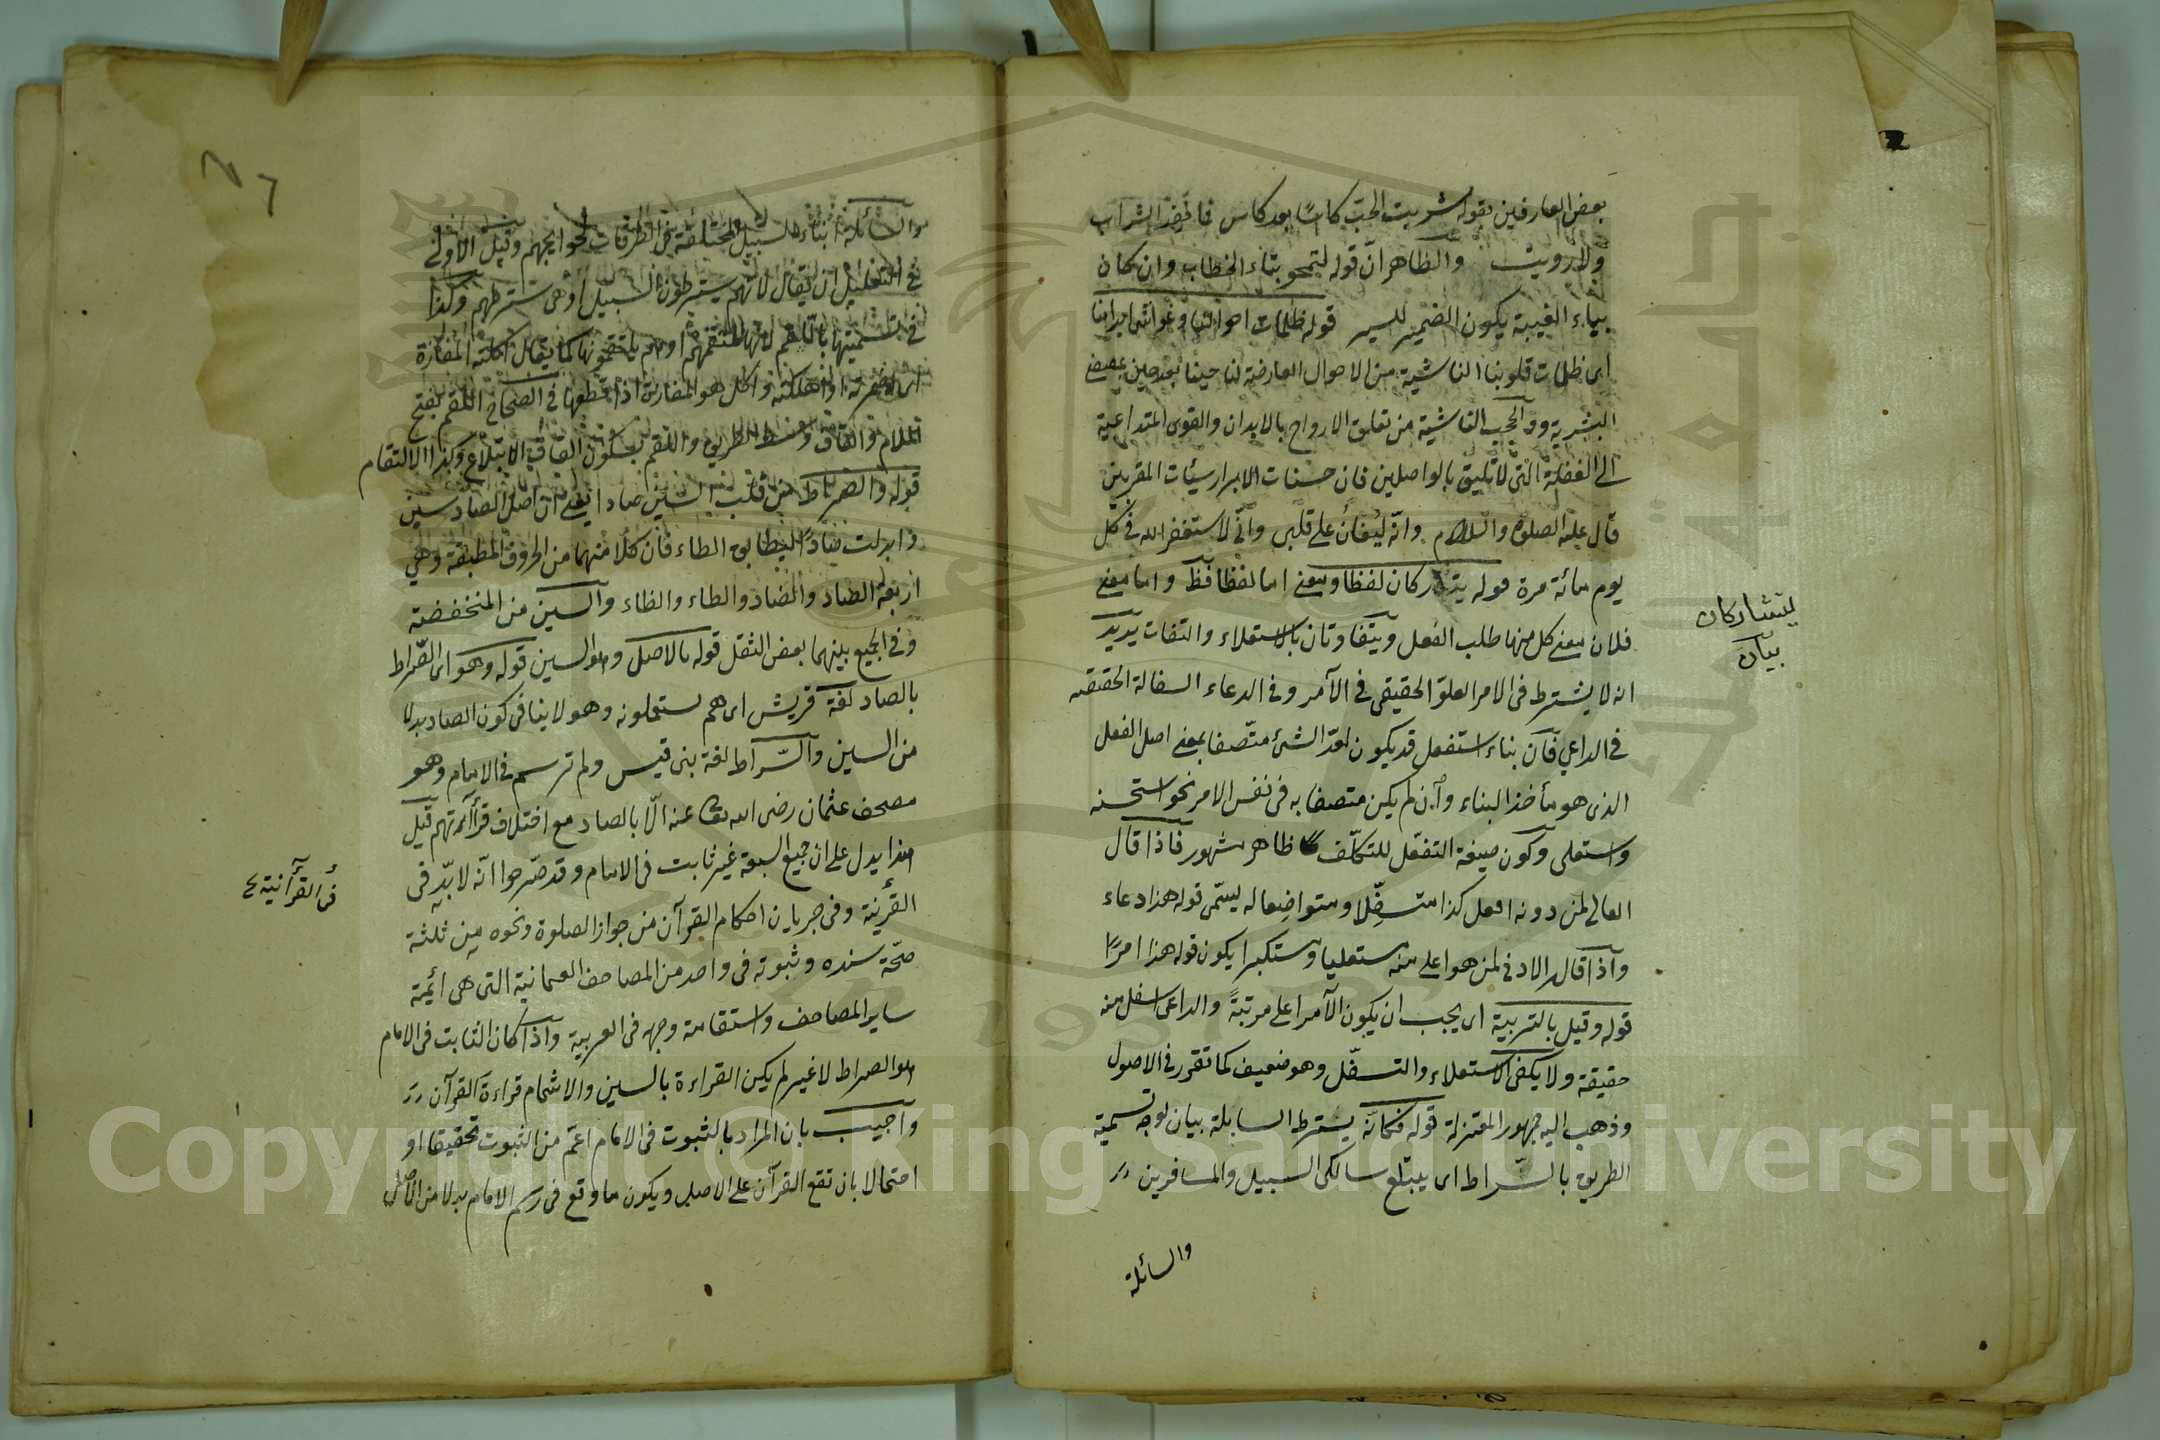 بعض العارفين بقوله شربت الحبّ كاسًا بعد كاس فما نفد الشراب
ولا رويت والظاهر انّ قوله لتمحو بتاء الخطاب وان كان
بياء الغيبة يكون الضمير للسير قوله ظلمات احوالنا وغواشى ابداننا
اى ظلمات قلوبنا الناشية من الاحوال العارضة لنا حينا بعد حين بمقتضى
البشرية والحجب الناشية من تعلق الارواح بالابدان والقوى المتداعية
الى الغفلة التى لا تليق بالواصلين فان حسنات الابرار سيئات المقربين
قال عليه الصلوة والسلام وانّه ليغان على قلبى وانّى لاستغفر الله فى كل
يوم مائة مرة قوله يتشاركان لفظا ومعنى اما لفظا فظ واما معنى
فلان معنى كل منهما طلب الفعل ويتفاوتان بالاستعلاء والتفات يريد
انه لا يشترط فى الامر العلو الحقيقى فى الآمر وفى الدعاء السفالة الحقيقة
فى الداعي فان بناء استفعل قد يكون لعدّ الشئ متّصفا بمعنى اصل الفعل
الذى هو مأخذ البناء وان لم يكن متصفا به فى نفس الامر نحو استحسنه
واستعلى وكون صيغة التفعّل للتكلّف ظاهر مشهور فاذا قال
العالى لمن دونه افعل كذا متسفّلا ومتواضعا له يسمّى قوله هذا دعاء
واذا قال الادنى لمن هو اعلى منه مستعليا ومستكبرا يكون قوله هذا امرًا
قوله وقيل بالتربية اى يجب ان يكون الآمر اعلى مرتبةً والداعى اسفل منه
حقيقة ولا يكفى الاستعلاء والتسفّل وهو ضعيف كما تقرر فى الاصول
وذهب اليه جمهور المعتزلة قوله فكانّه يسترط السابلة بيان لوجه تسمية
الطريق بالسّراط اى يبتلع سالكى السبيل والمسافرين
والسائلة
يتشاركان
بيان
والسائلة ابناء السبيل المختلفة فى الطرقات لحوايجهم وقيل الاولى
فى التعليل ان يقال لانهم يسترطون السبيل او هى تسترطهم وكذا
فى تسميتها باللقم لانها تلتقمهم او هم يلتقمونها كما يقال اكلته المفازة
اى اضمرته او اهلكته واكل هو المفازة اذا قطعها فى الصحاح اللقم بفتح
اللام والقاف وسط الطريق واللقم بسكون القاف الابتلاع وكذا الالتقام
قوله والصراط من قلب السين صادا يعنى ان اصل الصاد سين
وابدلت صادًا ليطابق الطاء فان كلًا منهما من الحروف المطبقة وهي
اربعة الصاد والضاد والطاء والظاء والسين من المنخفضة
وفى الجمع بينهما بعض الثقل قوله بالاصل وهو السين قوله وهو اى الصّراط
بالصاد لغة قريش اى هم يستعملونه وهو لا ينافى كون الصاد بدلا
من السين والسّراط لغة بنى قيس ولم ترسم فى الامام وهو
مصحف عثمان رضى الله تعا عنه الّا بالصاد مع اختلاف قراآتهم قيل
هذا يدل على ان جميع السبعة غير ثابت فى الامام وقد صّرحوا انّه لا بدّ فى
القرينة وفى جريان احكام القرآن من جواز الصلوة ونحوه من ثلثة
صحّة سنده وثبوته فى واحد من المصاحف العثمانية التى هى ائمة
ساير المصاحف واستقامة وجهه فى العربية واذا كان الثابت فى الامام
هو الصراط لا غير لم يكن القراءة بالسين والاشمام قراءة القرآن
واجيب بان المراد بالثبوت فى الامام اعمّ من الثبوت تحقيقا او
احتمالا بان تقع القرآن على الاصل ويكون ما وقع فى رسم الامام بدلا من الاصل
فى القرآنية
Copyright © King Saud University